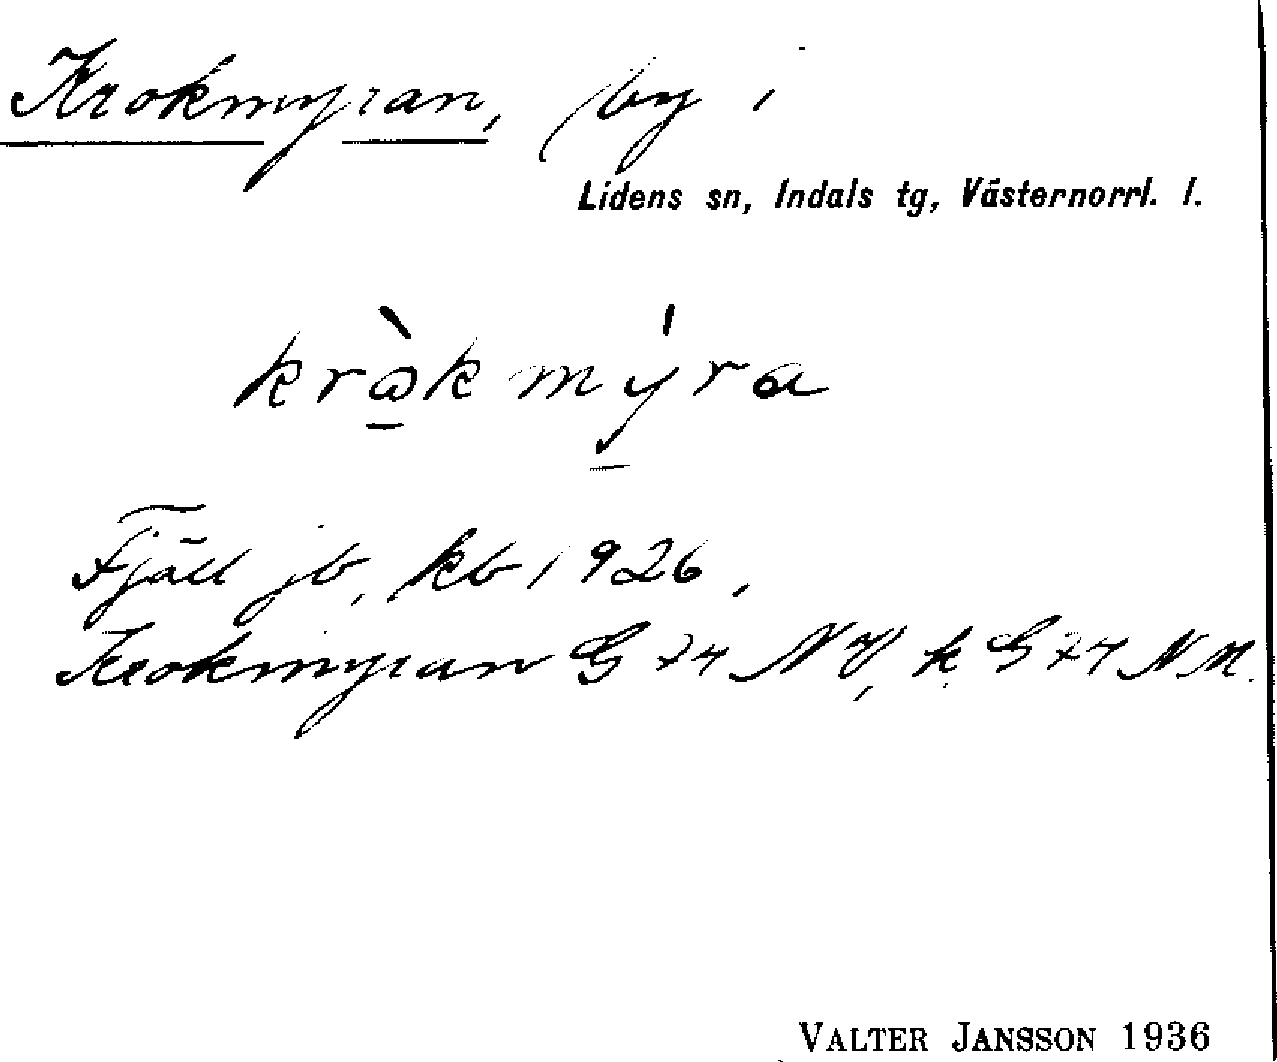 Krokmyran, by i
Lidens sn, Indals tg, Västernorrl. l.
kròkmýra
Fjäll jb, kb 1926,
Krokmyran G 74 NV, k G 74 NM.
VALTER JANSSON 1936